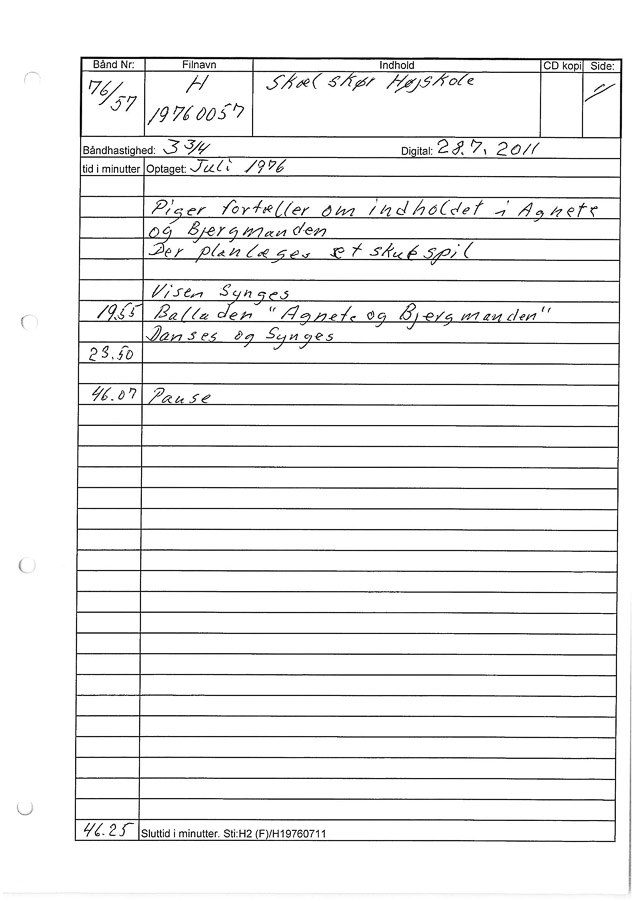 Bånd Nr: Filnavn Indhold CD kopi Side:
76/57 H Skælskør Højskole
19760057
Båndhastighed: 3 3/4 Digital: 28.7. 2011
tid i minutter Optaget: Juli 1976
Piger fortæller om indholdet i Agnete
og Bjergmanden
Der planlæges et skuespil
Visen Synges
19.55 Balladen "Agnete og Bjergmanden"
Danses og Synges
23.50
46.07 Pause
46.25 Sluttid i minutter. Sti:H2 (F)/H19760711